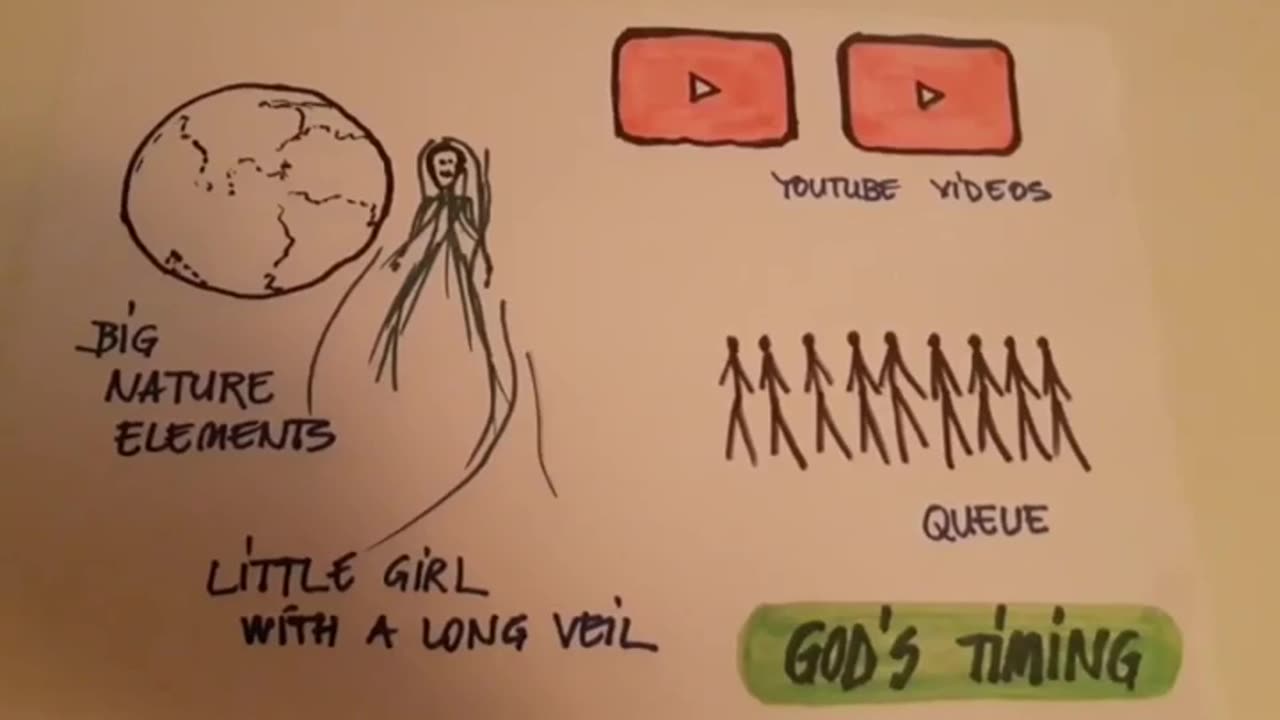 YOUTUBE VIDEOS
BIG
NATURE
ELEMENTS
QUEUE
LITTLE GIRL
WITH A LONG VEIL
GOD'S TIMING